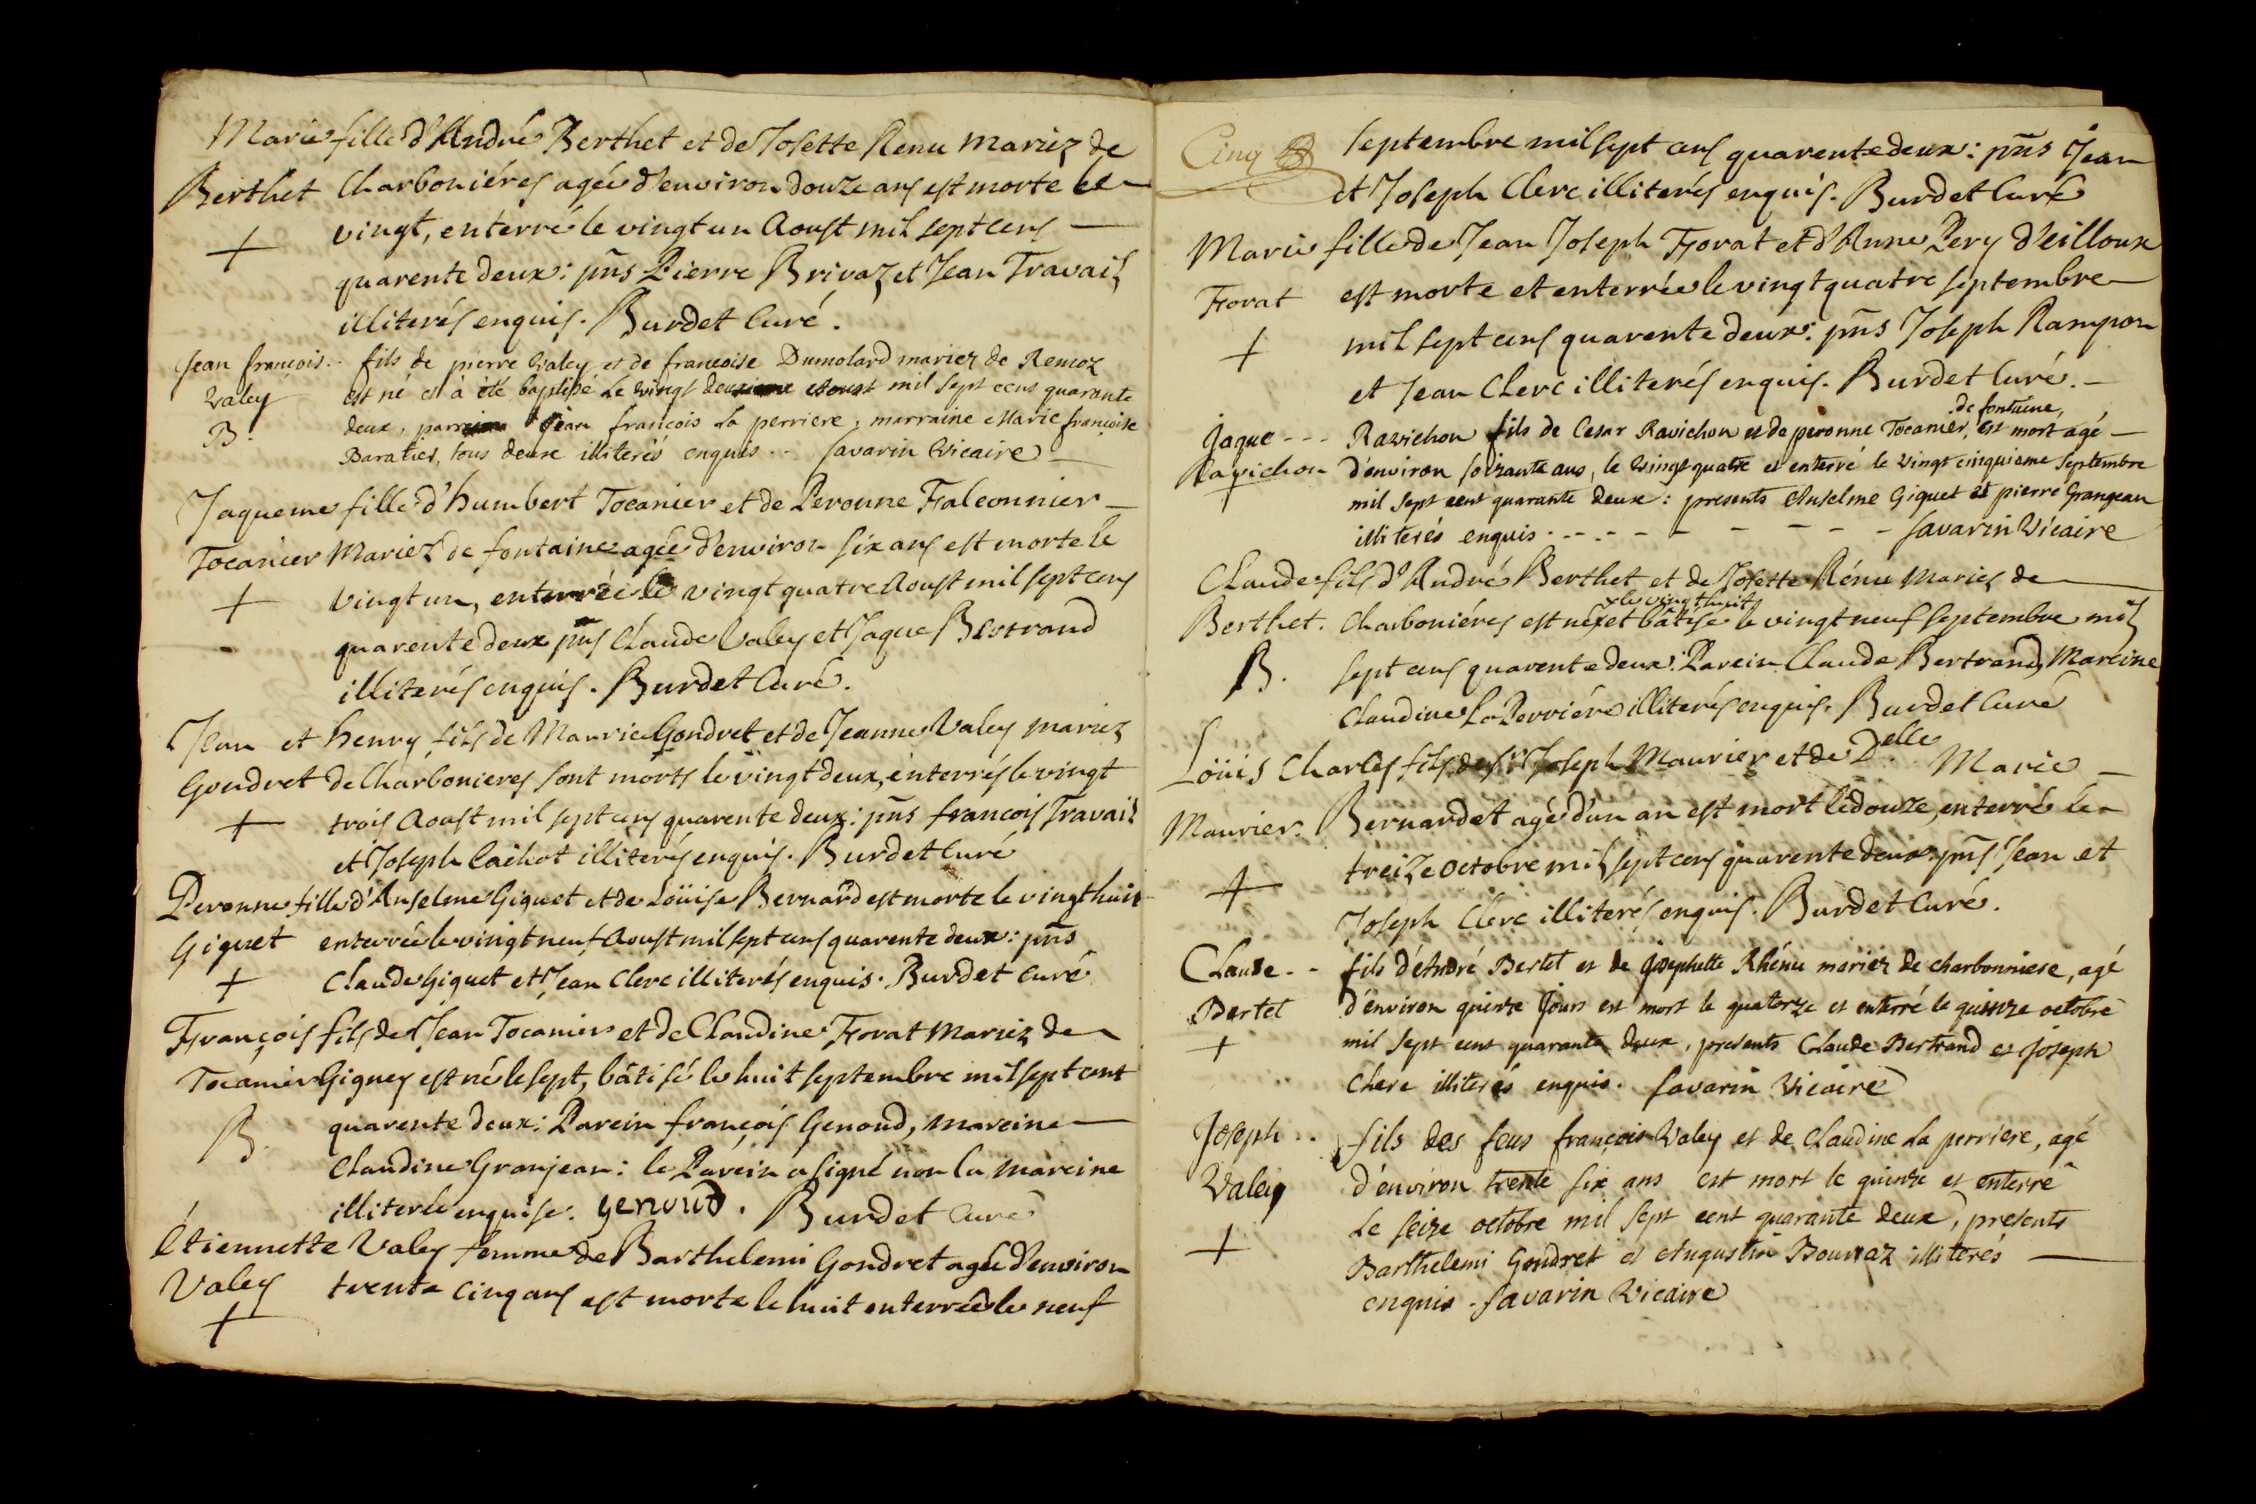 Marie fille d'André Berthet et de Josette Renu mariez de
Berthet Charboniéres agée d'environ douze ans est morte le
+ vingt, enterré le vingt un Aoust mil sept cens
quarente deux: pñs Pierre Brivaz et Jean Travail
illiterés enquis. Burdet Curé.
Jean francois.. fils de pierre Valey et de francoise Dumolard mariez de Remoz
Valey est né et à été baptisé le vingt deuxieme Aoust mil sept cens quarante
B. deux, parrain Jean francois la perriere, marraine Marie françoise
Baratier, tous deux illiterés enquis.. Savarin Vicaire
Jaqueme fille d'humbert Tocanier et de Peronne Falconnier
Tocanier Mariez de fontaine agée d'environ six ans est morte le
+ vingt un, enterrée le vingt quatre Aoust mil sept cens
quarente deux pñs Claude Valey et Jaque Bertrand
illiterés enquis. Burdet Curé.
Jean et henry fils de Maurice Gondret et de Jeanne Valey mariez
Gondret de Charbonieres sont morts le vingt deux, enterrés le vingt
+ trois Aoust mil sept cens quarente deux: pñs francois Travail
et Joseph Cachot illiterés enquis. Burdet Curé
Peronne fille d'Anselme Giguet et de Loüise Bernard est morte le vingt huit
Giguet enterrée le vingt neuf Aoust mil sept cens quarente deux: pñs
+ Claude Giguet et Jean Clerc illiterés enquis. Burdet Curé
François fils de Jean Tocanier et de Claudine Forat Mariez de
Tocanier Gigney est né le sept, bâtisé le huit septembre mil sept cent
B. quarente deux: Parein françois Genoud, mareine
Claudine Granjean: le Parein a signé non la mareine
illiterée enquise. genoud. Burdet Curé
Étiennette Valey femme de Barthelemi Gondret agée d'environ
Valey trente cinq ans est morte le huit enterrée le neuf
+
Cinq septembre mil sept cens quarente deux: pñs Jean
et Joseph Clerc illiterés enquis. Burdet Curé
Marie fille de Jean Joseph Forat et d'Anne Pery d'eilloux
Forat est morte et enterrée le vingt quatre septembre
+ mil sept cens quarente deux: pñs Joseph Rampon
et Jean Clerc illiterés enquis. Burdet Curé.
de fontaine,
Jaque --- Ravichon fils de Cesar Ravichon et de peronne Tocanier, est mort agé
Ravichon d'environ soixante ans, le vingt quatre et enterré le vingt cinquieme septembre
+ mil sept cent quarante deux: presents Anselme Giguet et pierre Grangean
illiterés enquis - - - - - - - - - Savarin Vicaire
Claude fils d'André Berthet et de Josette Rénu Mariez de
x le vingt huit
Berthet. Charboniéres est né x et bâtisé le vingt neuf septembre mil
B. sept cens quarente deux: Parein Claude Bertrand, Mareine
Claudine La Perriére illiterés enquis. Burdet Curé
Loüis Charles fils de Sr Joseph Maurier et de Delle Marie
Maurier. Bernardet agé d'un an est mort le douze, enterré le
+ treize octobre mil sept cens quarente deux: pñs Jean et
Joseph Clerc illiterés enquis. Burdet Curé.
Claude -- fils d'André Bertet et de Josephette Rhénu mariez de charbonniere, agé
Bertet d'environ quinze jours est mort le quatorze et enterré le quinze octobre
+ mil sept cent quarante deux, presents Claude Bertrand et Joseph
Clerc illiterés enquis. Savarin Vicaire
Joseph .. fils des feus françois Valey et de Claudine la perriere, agé
Valey d'environ trente six ans est mort le quinze et enterré
+ le seize octobre mil sept cent quarante deux, presents
Barthelemi Gondret et Augustin Bouvaz illiterés
enquis. Savarin Vicaire